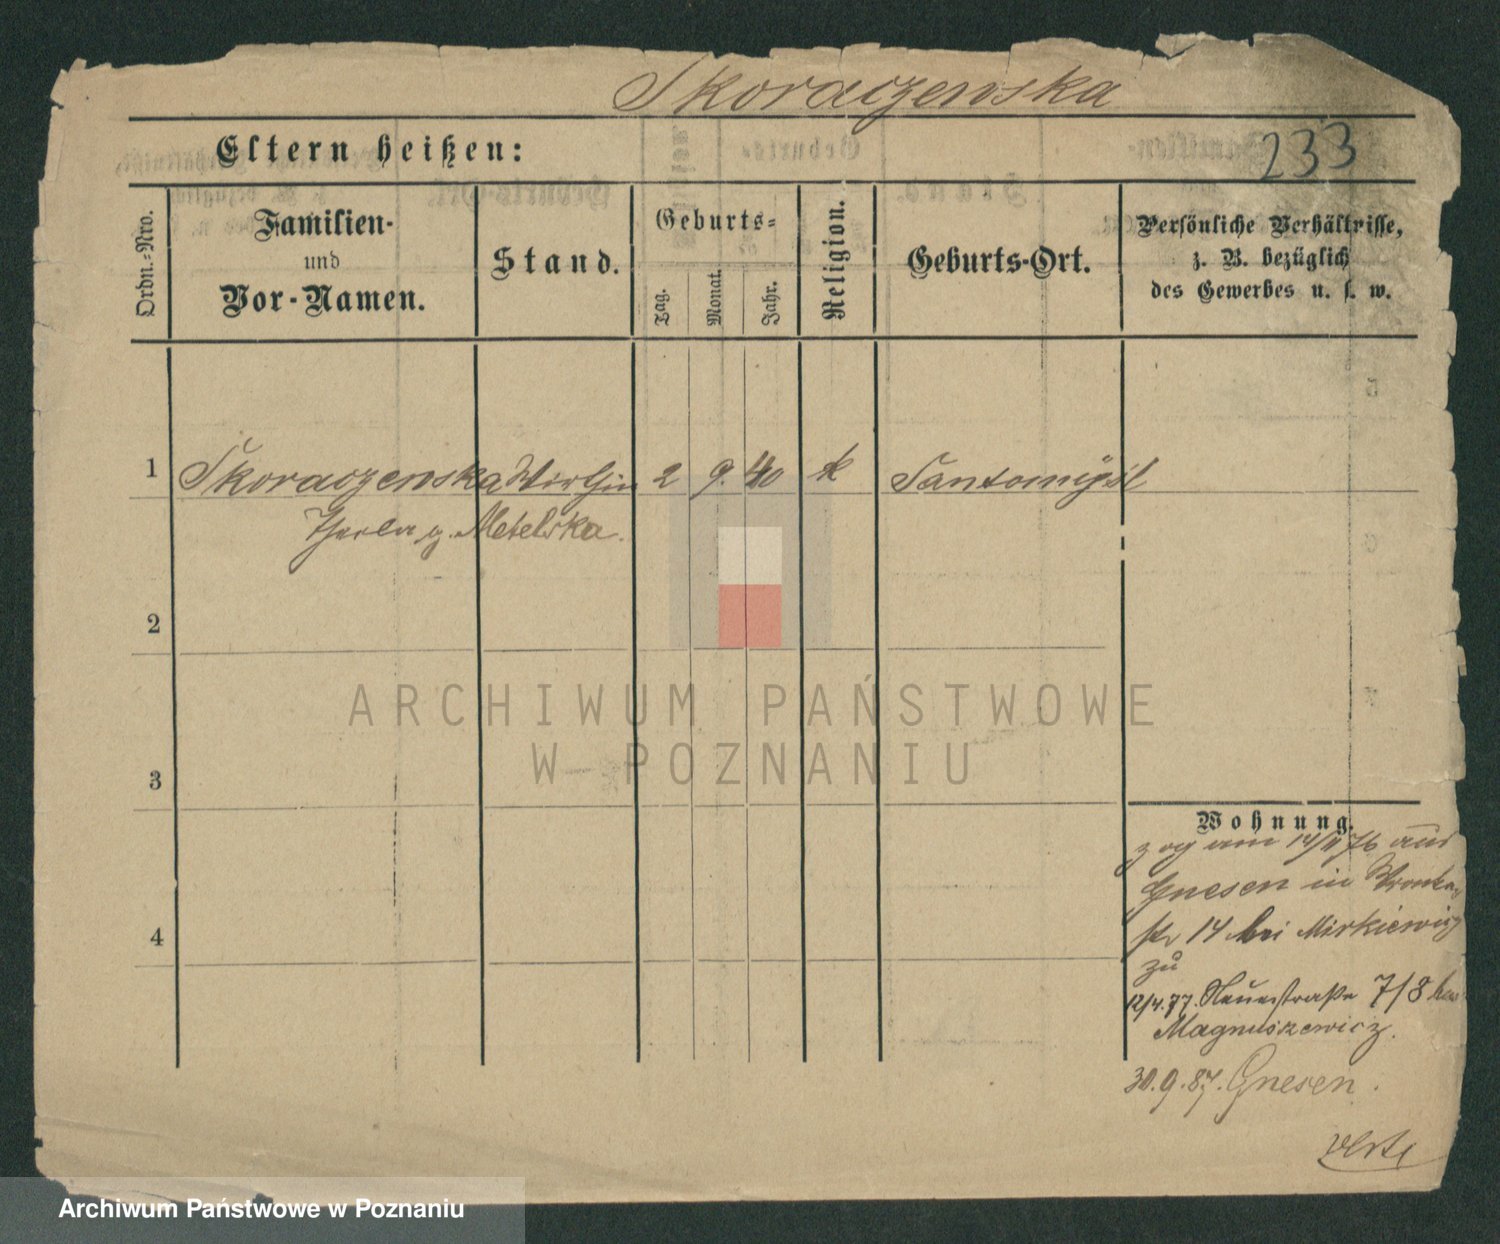 Skoraczenska
233
Eltern heißen:
Ordn.-Nro.
Familien-
und
Vor-Namen.
Stand.
Geburts-
Tag.
Monat.
Jahr.
Religion.
Geburts-Ort.
Persönliche Verhältnisse,
z. B. bezüglich
des Gewerbes u. s. w.
1 Skoraczenska 2 9. 40 k Santomyśl
g. Metelska.
2
3
4
Wohnung.
zog am 14/11 76 aus
Gnesen in Wronker
str 14 bei Mirkiewicz
zu
12/4.77. Neuestraße 7/8 bei
Magnuszewicz.
30.9.87. Gnesen.
verte
ARCHIWUM PAŃSTWOWE
W POZNANIU
Archiwum Państwowe w Poznaniu